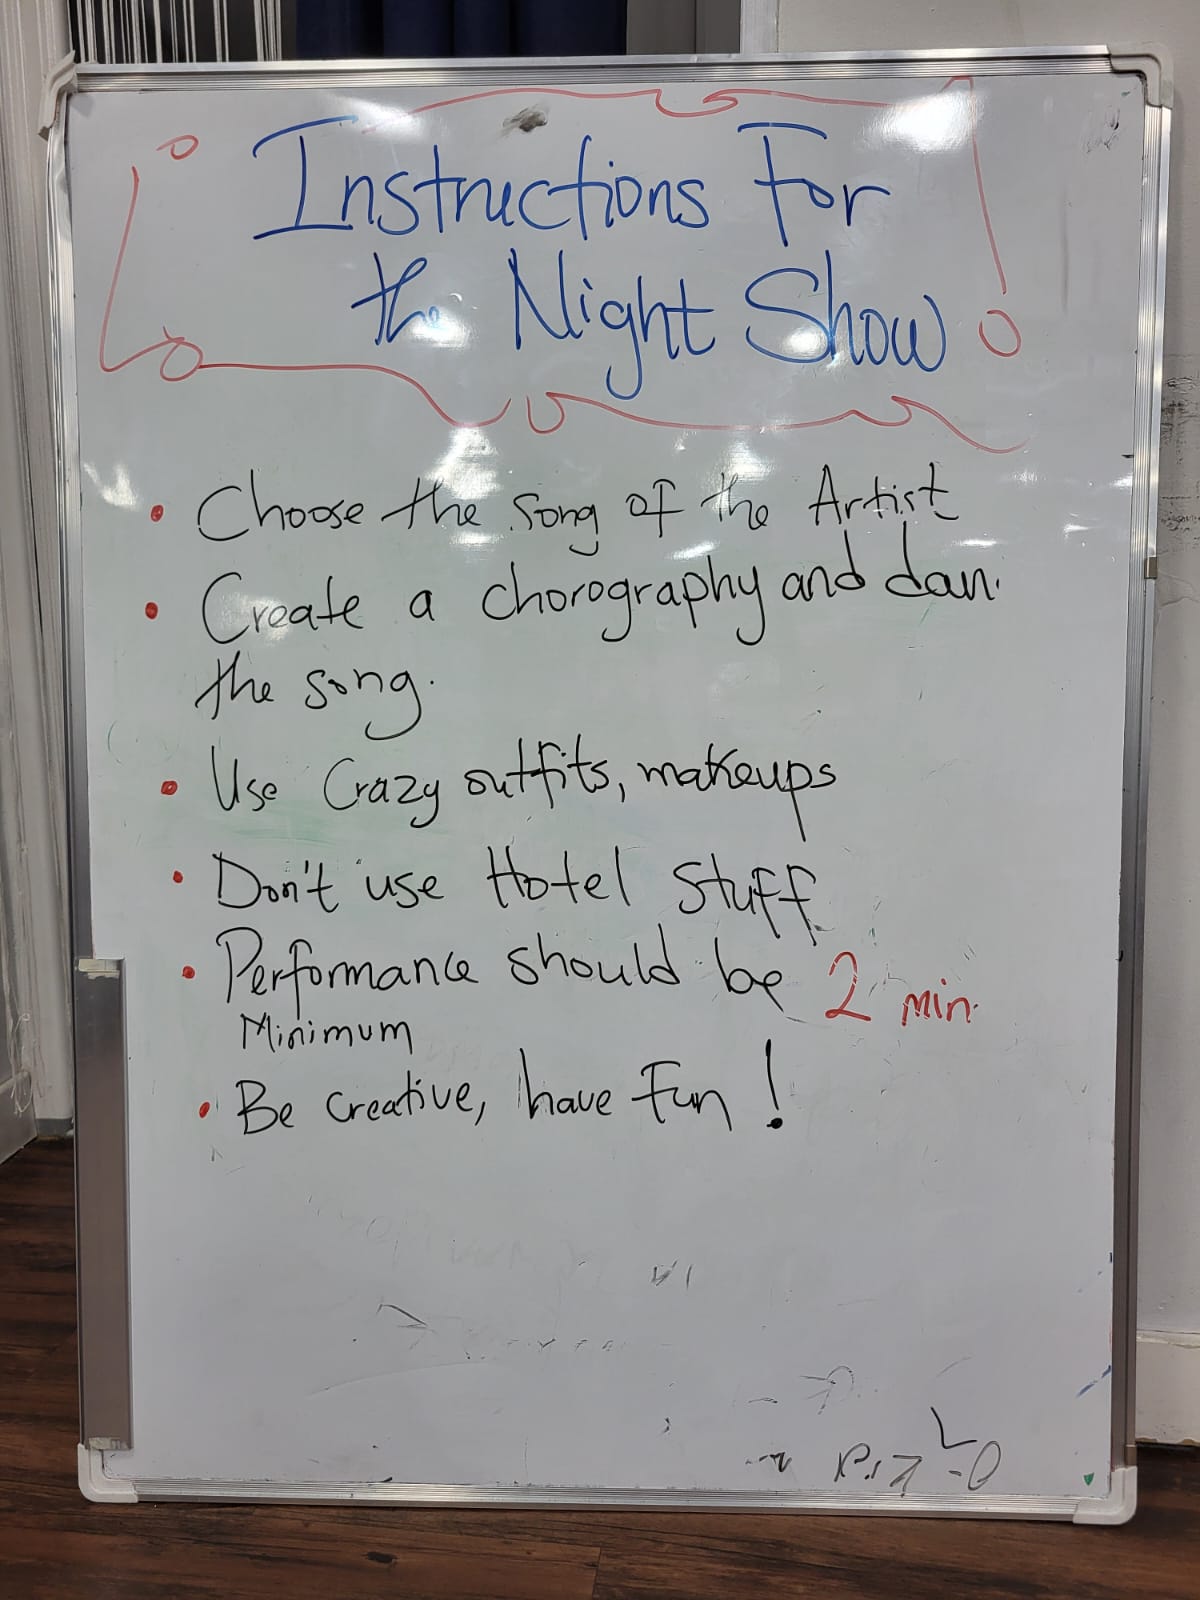 Instructions For
the Night Show
• Choose the song of the Artist
• Create a chorography and dan.
the song.
• Use Crazy outfits, makeups
• Don't use Hotel Stuff
• Performance should be 2 min.
Minimum
• Be creative, have Fun!